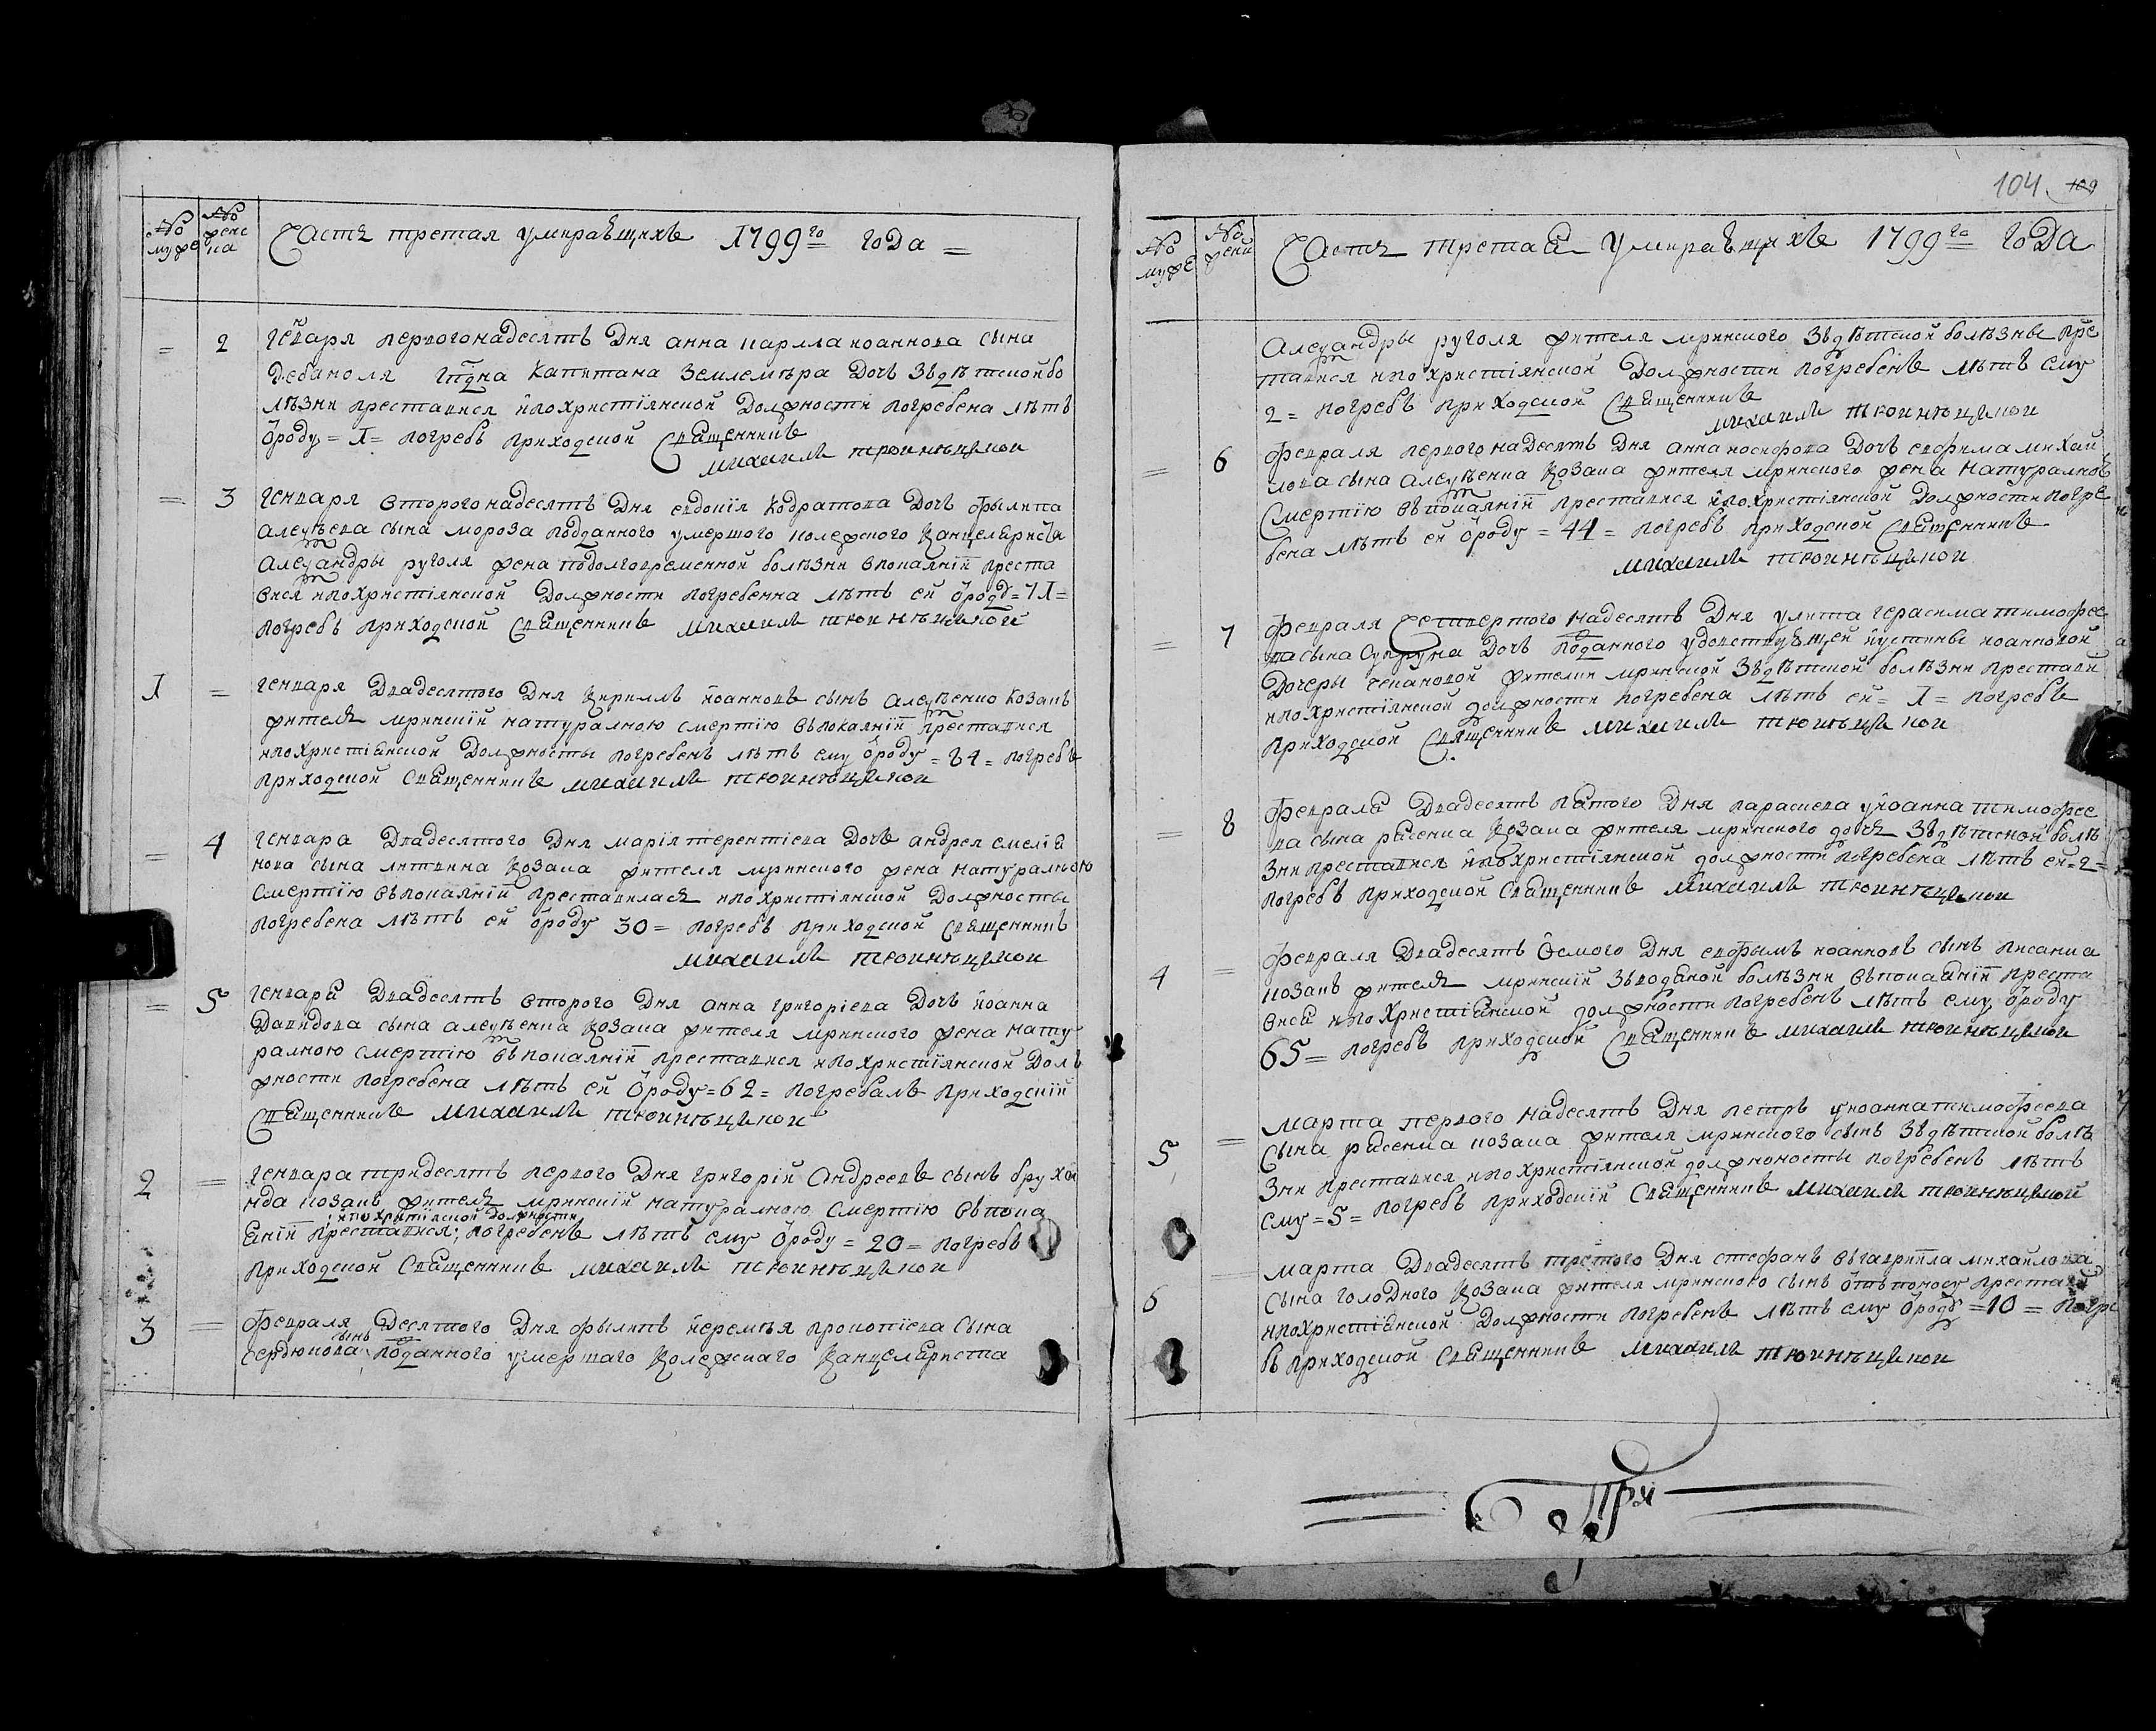 № муже
№ женска
Часть третая умирающихъ 1799го года =
= 2 генваря первогонадесять дня анна карпла иоаннова сына
Дебаполя гпдна капитана землемѣра дочь зъдѣтской бо
лѣзни преставися ипохристіянской должности погребена лѣтъ
ѿроду = 1 = погребъ приходской священникъ
михаилъ
= 3 генваря второгонадесять дня евдокіа кодратова дочь фылипа
алеѯѣева сына мороза подданного умершого колежского канцеляриста
алеѯандры руголя жена подолговременной болѣзни впокаяніи преста
вися ипохристіянской должности погребенна лѣтъ ей ѿроду = 71 =
погребъ приходской священникъ михаилъ
1 = генваря двадесятого дня кирилъ иоанновъ сынъ алеѯѣенко козакъ
житель мринскій натуралною смертію въпокаяніи преставися
ипохристіянской должносты погребенъ лѣтъ ему ѿроду = 84 = погребъ
приходской священникъ михаилъ
= 4 генваря двадесятого дня марія терентіева дочь андрея емелія
нова сына литвина козака жителя мринского жена натуралною
смертію въпокаяніи преставилась ипохристіянской должносты
погребена лѣтъ ей ѿроду 30 = погребъ приходской священникъ
михаилъ
= 5 генваря двадесять второго дня анна григоріева дочь иоанна
давидова сына алеѯѣенка козака жителя мринского жена нату
ралною смертію въпокаяніи преставися ипохристіянской дол
жности погребена лѣтъ ей ѿроду = 62 = погребалъ приходскій
священникъ михаилъ
2 = генваря тридесять первого дня григорій андреевъ сынъ брухан
нда козакъ житель мринскій натуралною смертію въпока
яніи преставися; ипохритіяской должности погребенъ лѣтъ ему ѿроду = 20 = погребъ
приходской священникъ михаилъ
3 = февраля десятого дня фылипъ иеремѣя прокопіева сына
сердюкова сынъ подданного умершаго колежскаго канцеляриста
104 109
№ муже
№ женск
Часть третая умирающихъ 1799го года
алеѯандры руголя жителя мринского зъдѣтской болѣзны пре
тавися ипохристіянской должности погребенъ лѣтъ ему
2 = погребъ приходской священникъ
михаилъ
= 6 февраля первого надесять дня анна иосифова дочь евфима михай
лова сына алеѯѣенка козака жителя мринского жена натуралною
смертію въпокаяніи преставися ипохристіянской должности погре
бена лѣтъ ей ѿроду = 44 = погребъ приходской священникъ
михаилъ
= 7 февраля четвертого надесять дня улита герасима тимофее
ва сына супруна дочь подданного удовствующей иустины иоанновой
дочеры чепановой жителки мринской зъдѣтской болѣзни престави
ипохристіянской должности погребена лѣтъ ей = 1 = погребъ
приходской священникъ михаилъ
= 8 февраля двадесять пятого дня параскева уиоанна тимофее
ва сына рисенка козака жителя мринского дочь зъдѣтской болѣ
зни преставися ипохристіянской должности погребена лѣтъ ей = 2 =
погребъ приходской священникъ михаилъ
4 = февраля двадесять осмого дня евфымъ иоанновъ сынъ писанка
козакъ житель мринскій зъводяной болѣзни въпокаяніи преста
вися ипохристіянской должности погребенъ лѣтъ ему ѿроду
65 = погребъ приходской священникъ михаилъ
5 = марта первого надесять дня петръ уиоанна тимофеева
сына рисенка козака жителя мринского сынъ зъдѣтской болѣ
зни преставися ипохристіянской должноносты погребенъ лѣтъ
ему = 5 = погребъ приходскій священникъ михаилъ
6 = марта двадесять третого дня стефанъ въгавриила михайлова
сына голодного козака жителя мринского сынъ ѿтъпоносу преставися
ипохристіянской должности погребенъ лѣтъ ему ѿроду = 10 = погре
бъ приходской священникъ михаилъ
При